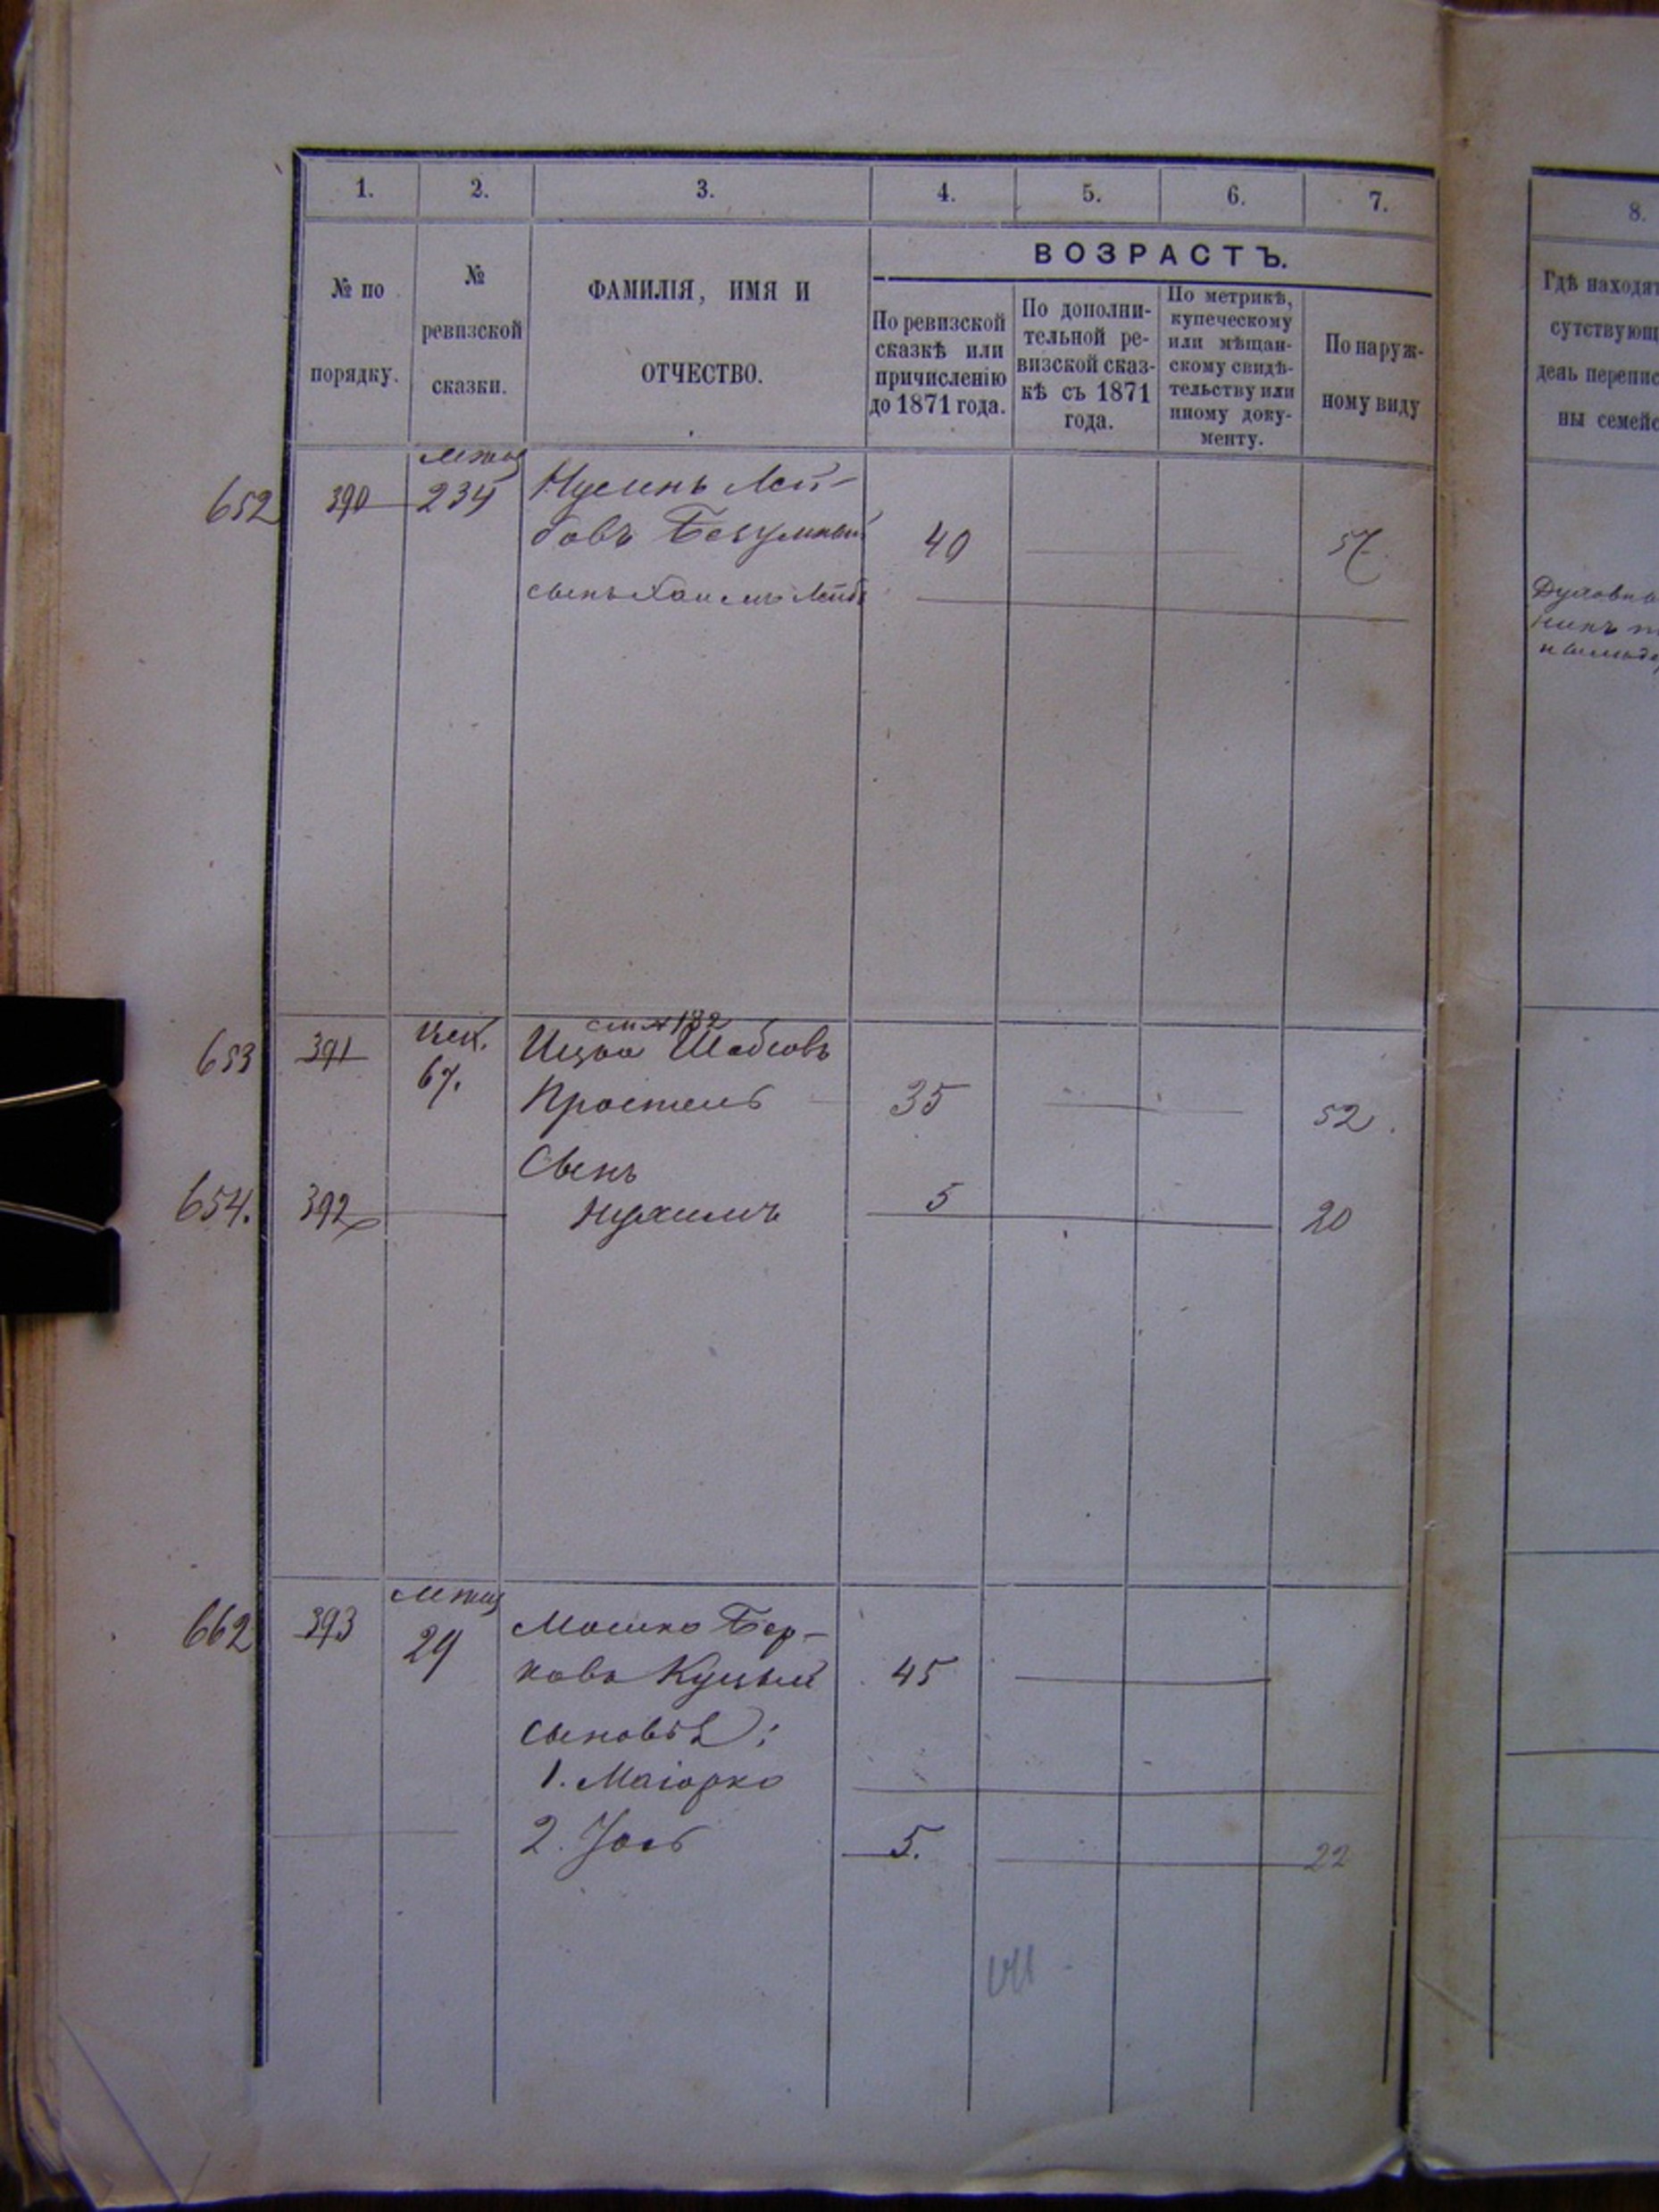 1. 2. 3. 4. 5. 6. 7.
8.
№ по порядку.
№ ревизской сказки.
ФАМИЛІЯ, ИМЯ И
ОТЧЕСТВО.
ВОЗРАСТЪ.
По ревизской
сказкѣ или
причисленію
до 1871 года.
По дополни-
тельной ре-
визской сказ-
кѣ съ 1871
года.
По метрикѣ,
купеческому
или мѣщан-
скому свидѣ-
тельству или
иному доку-
менту.
По наруж-
ному виду
Гдѣ находят
сутствующ
день перепис
ны семейс
652 390 234 Нусинь Лей-
бовъ Безумный 40 57.
сынъ Хаимъ Лейб
Духовны
см № 182
653 391 67. Ицко Шабсовъ
Простель 35 52.
Сынъ
654. 392 Нухимъ 5 20
662 393 29 Мошко Бер-
ковъ Куцый 45
сыновья:
1. Маіорко
2. Іось 5. 22